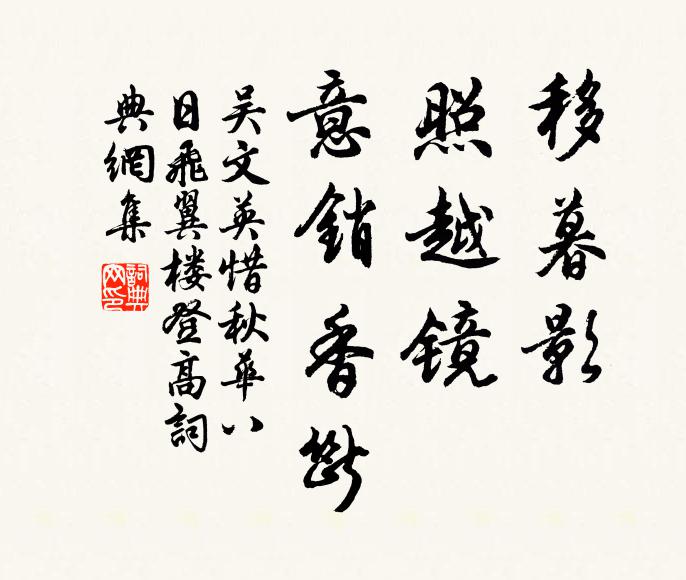 移暮影
照越镜
意銷香斷
吴文英惜秋華八
日飛翼楼登高詞
典網集
詞典网印